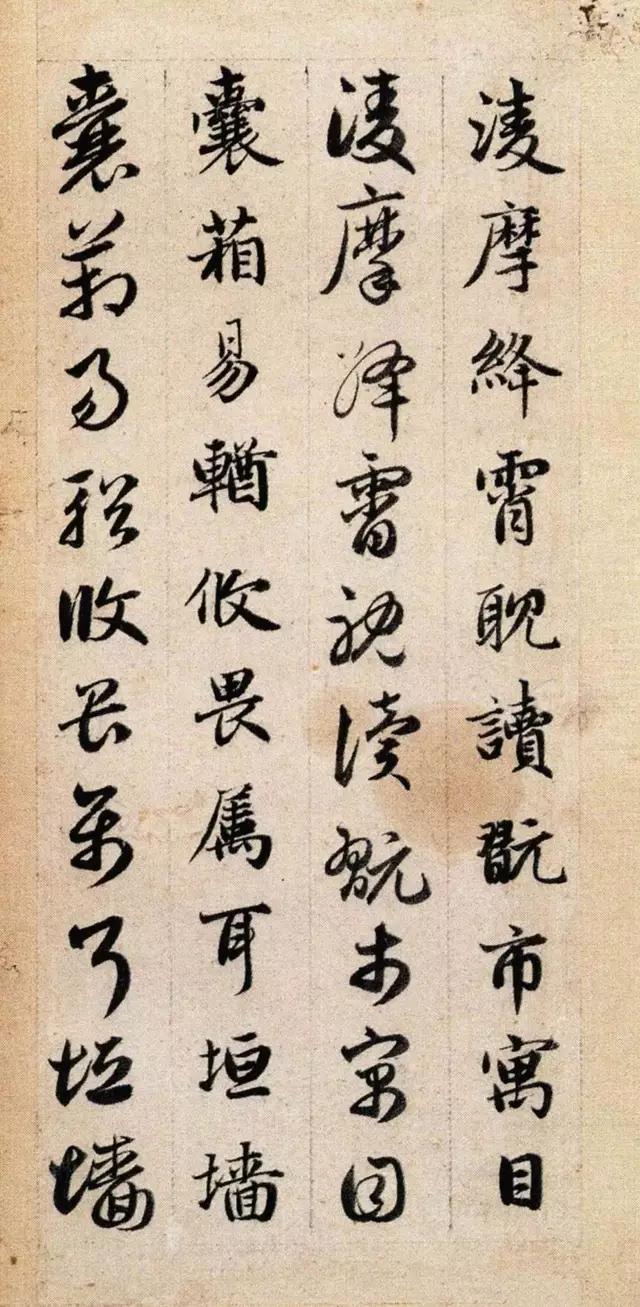 凌摩絳霄耽讀翫市寓目
凌摩絳霄耽讀翫市寓目
囊箱易輶攸畏属耳垣墙
囊箱易輶攸畏属耳垣墙